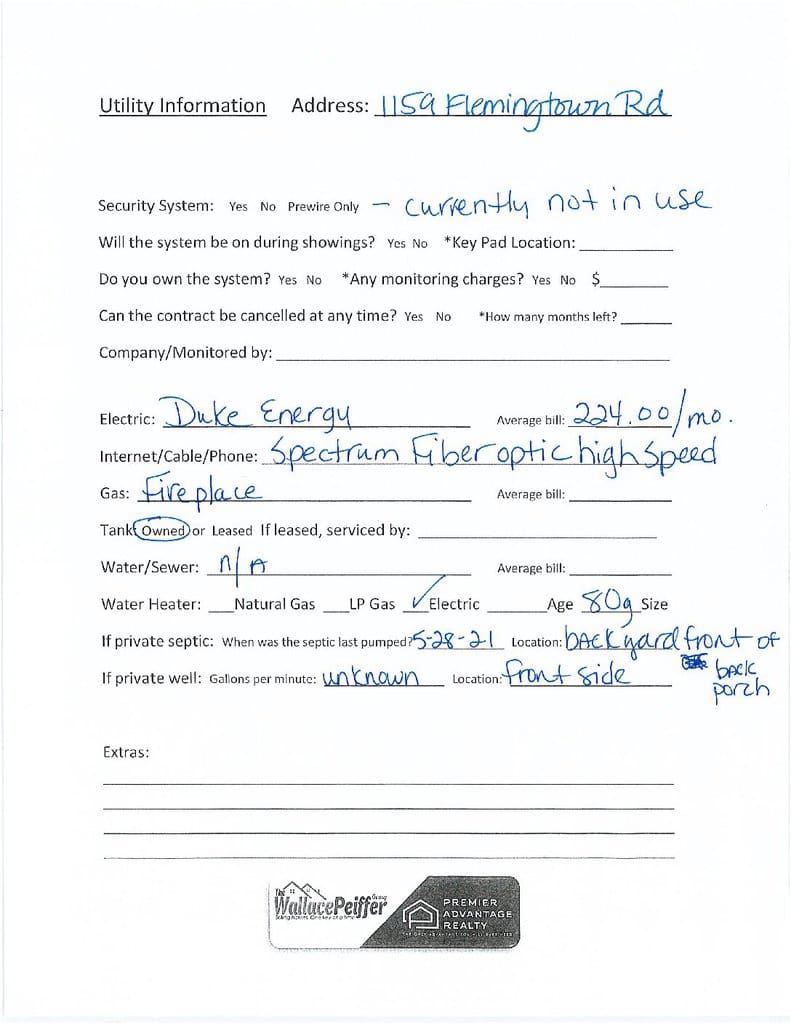 Utility Information Address: 1159 Flemingtown Rd
Security System: Yes No Prewire Only – currently not in use
Will the system be on during showings? Yes No *Key Pad Location: ________
Do you own the system? Yes No *Any monitoring charges? Yes No $________
Can the contract be cancelled at any time? Yes No *How many months left? ________
Company/Monitored by: ________
Electric: Duke Energy Average bill: 224.00/mo.
Internet/Cable/Phone: Spectrum Fiber optic high Speed
Gas: Fireplace Average bill: ________
Tank Owned or Leased If leased, serviced by: ________
Water/Sewer: n/A Average bill: ________
Water Heater: ___Natural Gas ___LP Gas ✓Electric ________Age 80g Size
If private septic: When was the septic last pumped? 5-28-21 Location: backyard front of
back
porch
If private well: Gallons per minute: unknown Location: front side
Extras:
The WallacePeiffer Group
PREMIER
ADVANTAGE
REALTY